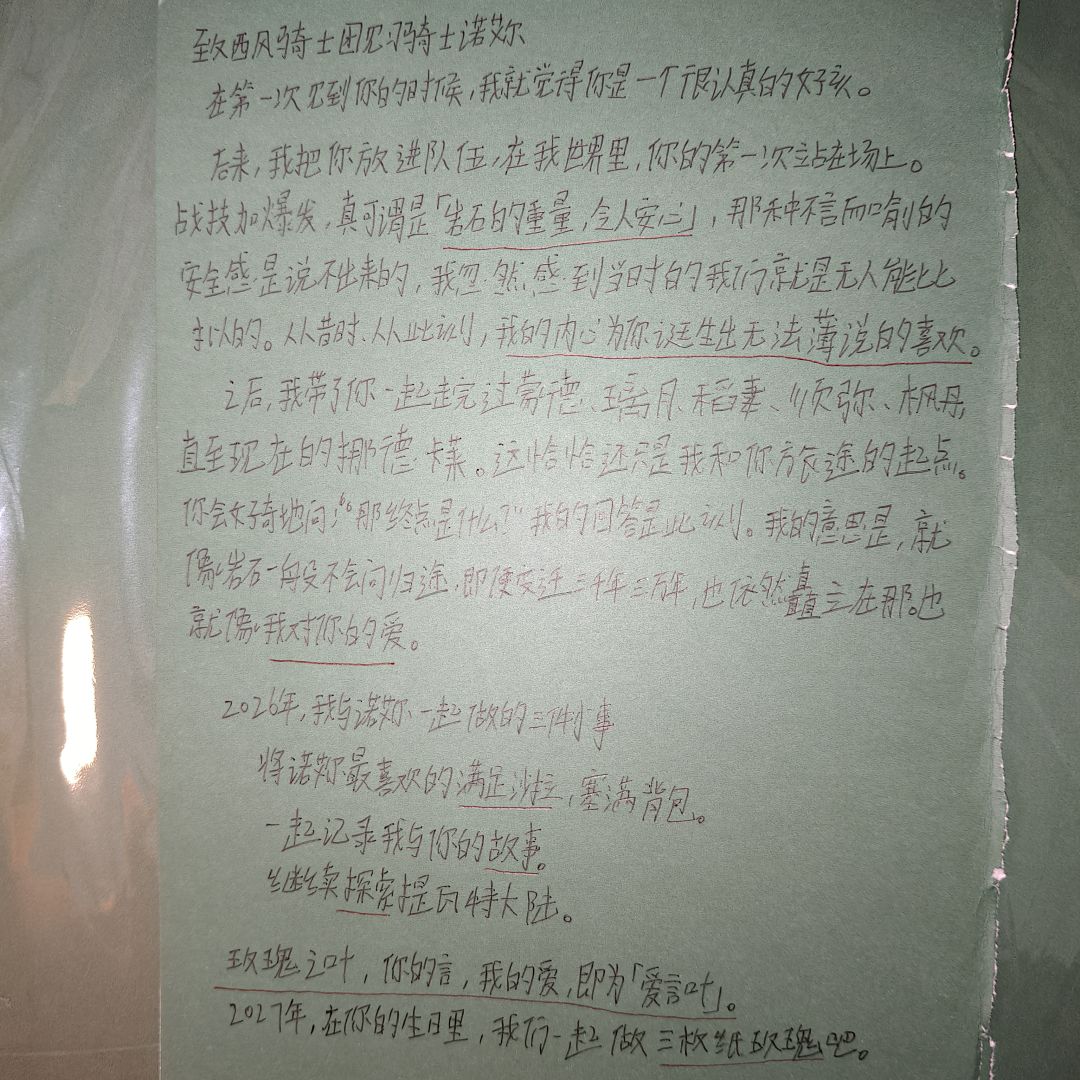 致西风骑士团见习骑士诺艾尔
在第一次见到你的时候，我就觉得你是一个很认真的女孩。
后来，我把你放进队伍，在我世界里，你的第一次站在场上。
战技加爆发，真可谓是「岩石的重量，令人安心」，那种不言而喻的
安全感是说不出来的，我忽然感到当时的我们就是无人能比
拟的。从昔时、从此刻，我的内心为你诞生出无法薄说的喜欢。
之后，我带了你一起走完过蒙德、璃月、稻妻、须弥、枫丹，
直至现在的挪德卡莱。这恰恰还只是我和你旅途的起点。
你会好奇地问：“那终点是什么？”我的回答是此刻。我的意思是，就
像岩石一般不会问归途，即便变迁三千年三万年，也依然矗立在那。也
就像我对你的爱。
2026年，我与诺艾尔一起做的三件小事
将诺艾尔最喜欢的满足沙拉，塞满背包。
一起记录我与你的故事。
继续探索提瓦特大陆。
玫瑰之叶，你的言，我的爱，即为「爱言叶」。
2027年，在你的生日里，我们一起做三枚纸玫瑰吧。